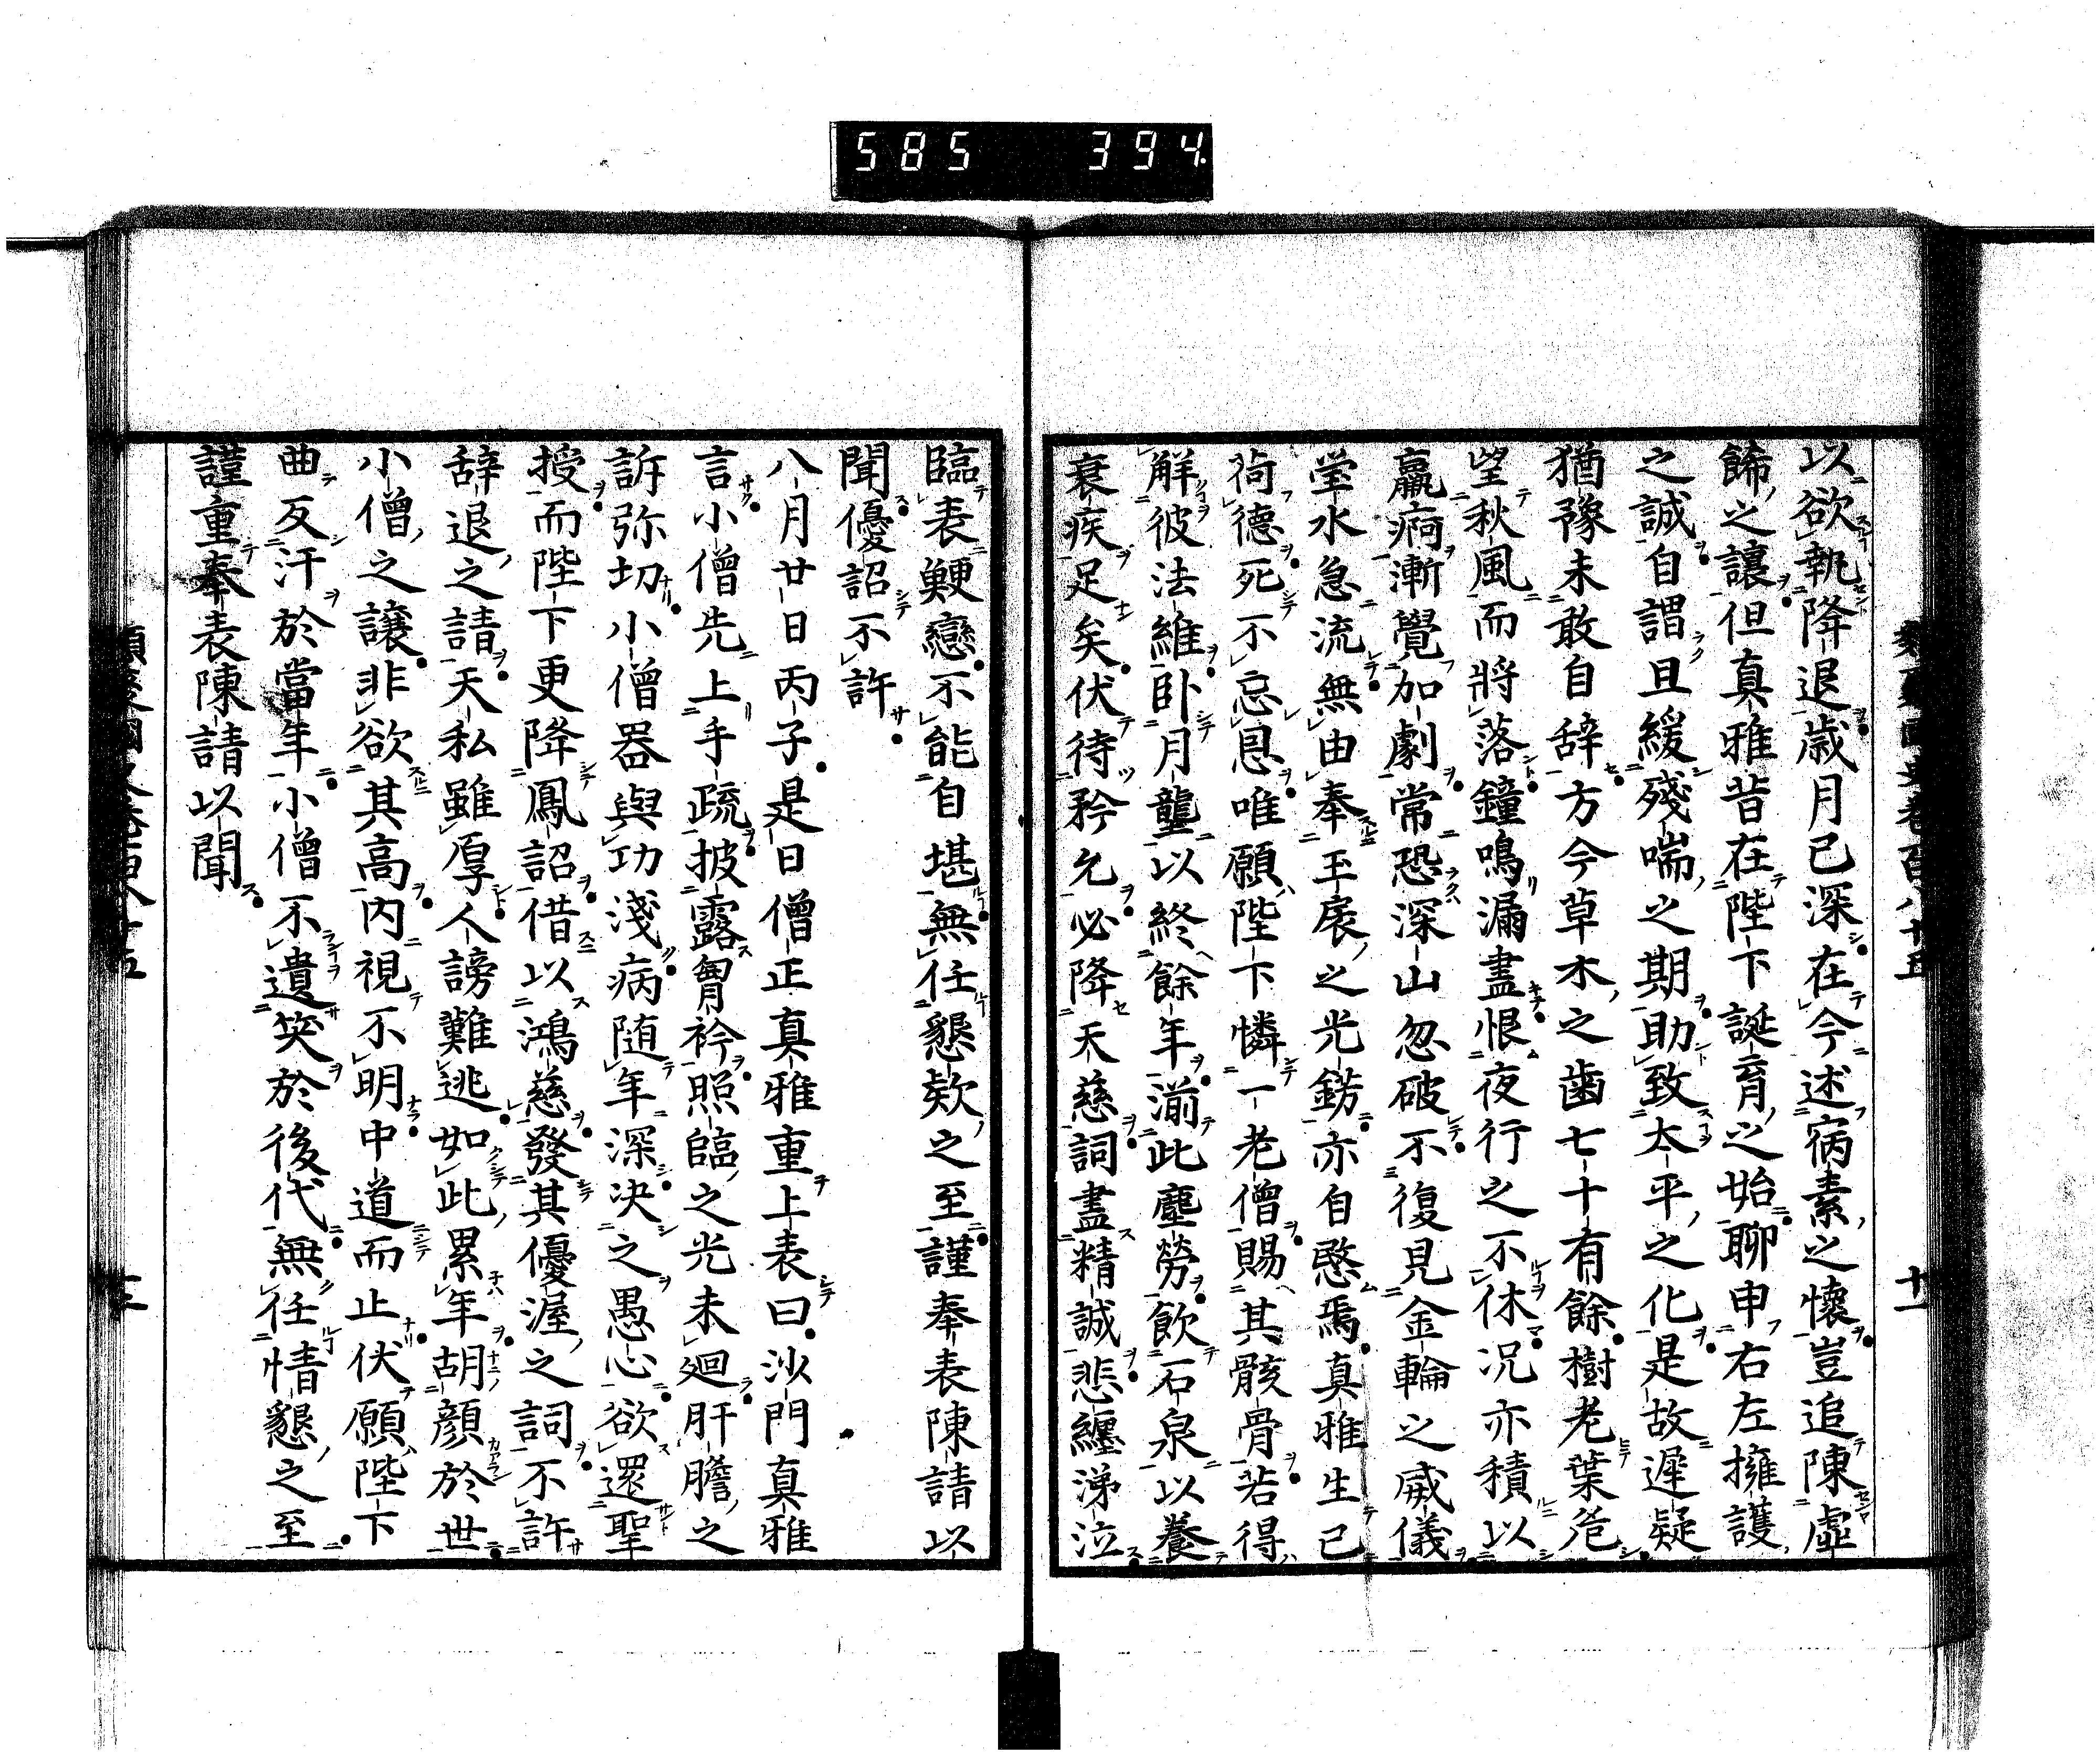 585 394
以欲執降退歳月已深在今述病素之懷豈追陳虛
餙之讓但真雅昔在陛下誕育之始聊申右左擁護
之誠自謂且緩殘喘之期助致太平之化是故遲疑
猶豫未敢自辞方今草木之齒七十有餘樹老葉危
望秋風而將落鐘鳴漏盡恨夜行之不休况亦積以
羸痾漸覺加劇常恐深山忽破不復見金輪之威儀
瑩水急流無由奉玉扆之光錺亦自愍焉真雅生已
荷德死不忘恩唯願陛下憐一老僧賜其骸骨若得
解彼法維卧月龕以終餘年湔此塵勞飲石泉以養
衰疾足矣伏待矜允必降天慈詞盡精誠悲纏涕泣
臨表鯁戀不能自堪無任懇欵之至謹奉表陳請以
聞優詔不許
八月廿日丙子是日僧正真雅重上表曰沙門真雅
言小僧先上手疏披露胷衿照臨之光未廻肝膽之
訴弥切小僧器與功淺病随年深决之愚心欲還聖
授而陛下更降鳳詔借以鴻慈發其優渥之詞不許
辞退之請天私雖厚人謗難逃如此累年胡顔於世
小僧之譲非欲其高内視不明中道而止伏願陛下
曲反汗於當年小僧不遺笑於後代無任情懇之至
謹重奉表陳請以聞